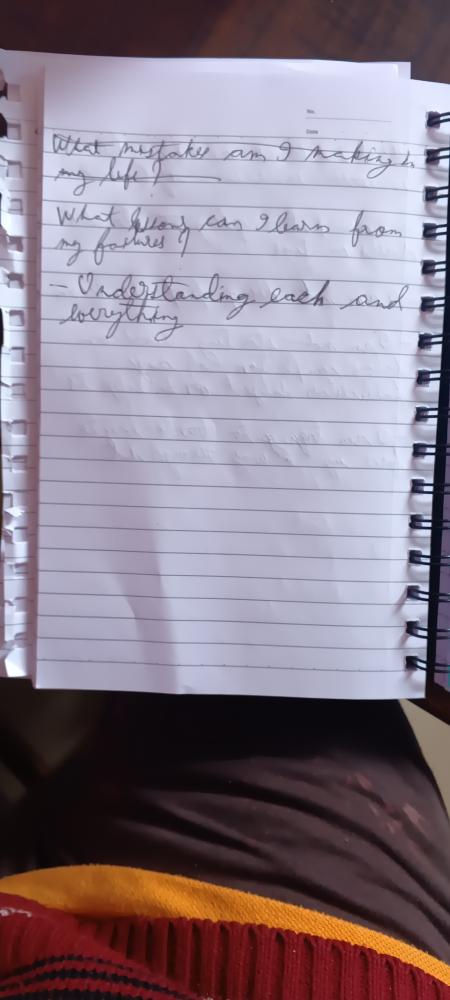 No.
Date
What mistakes am I making in
my life?
What lessons can I learn from
my failures?
- Understanding each and
everything